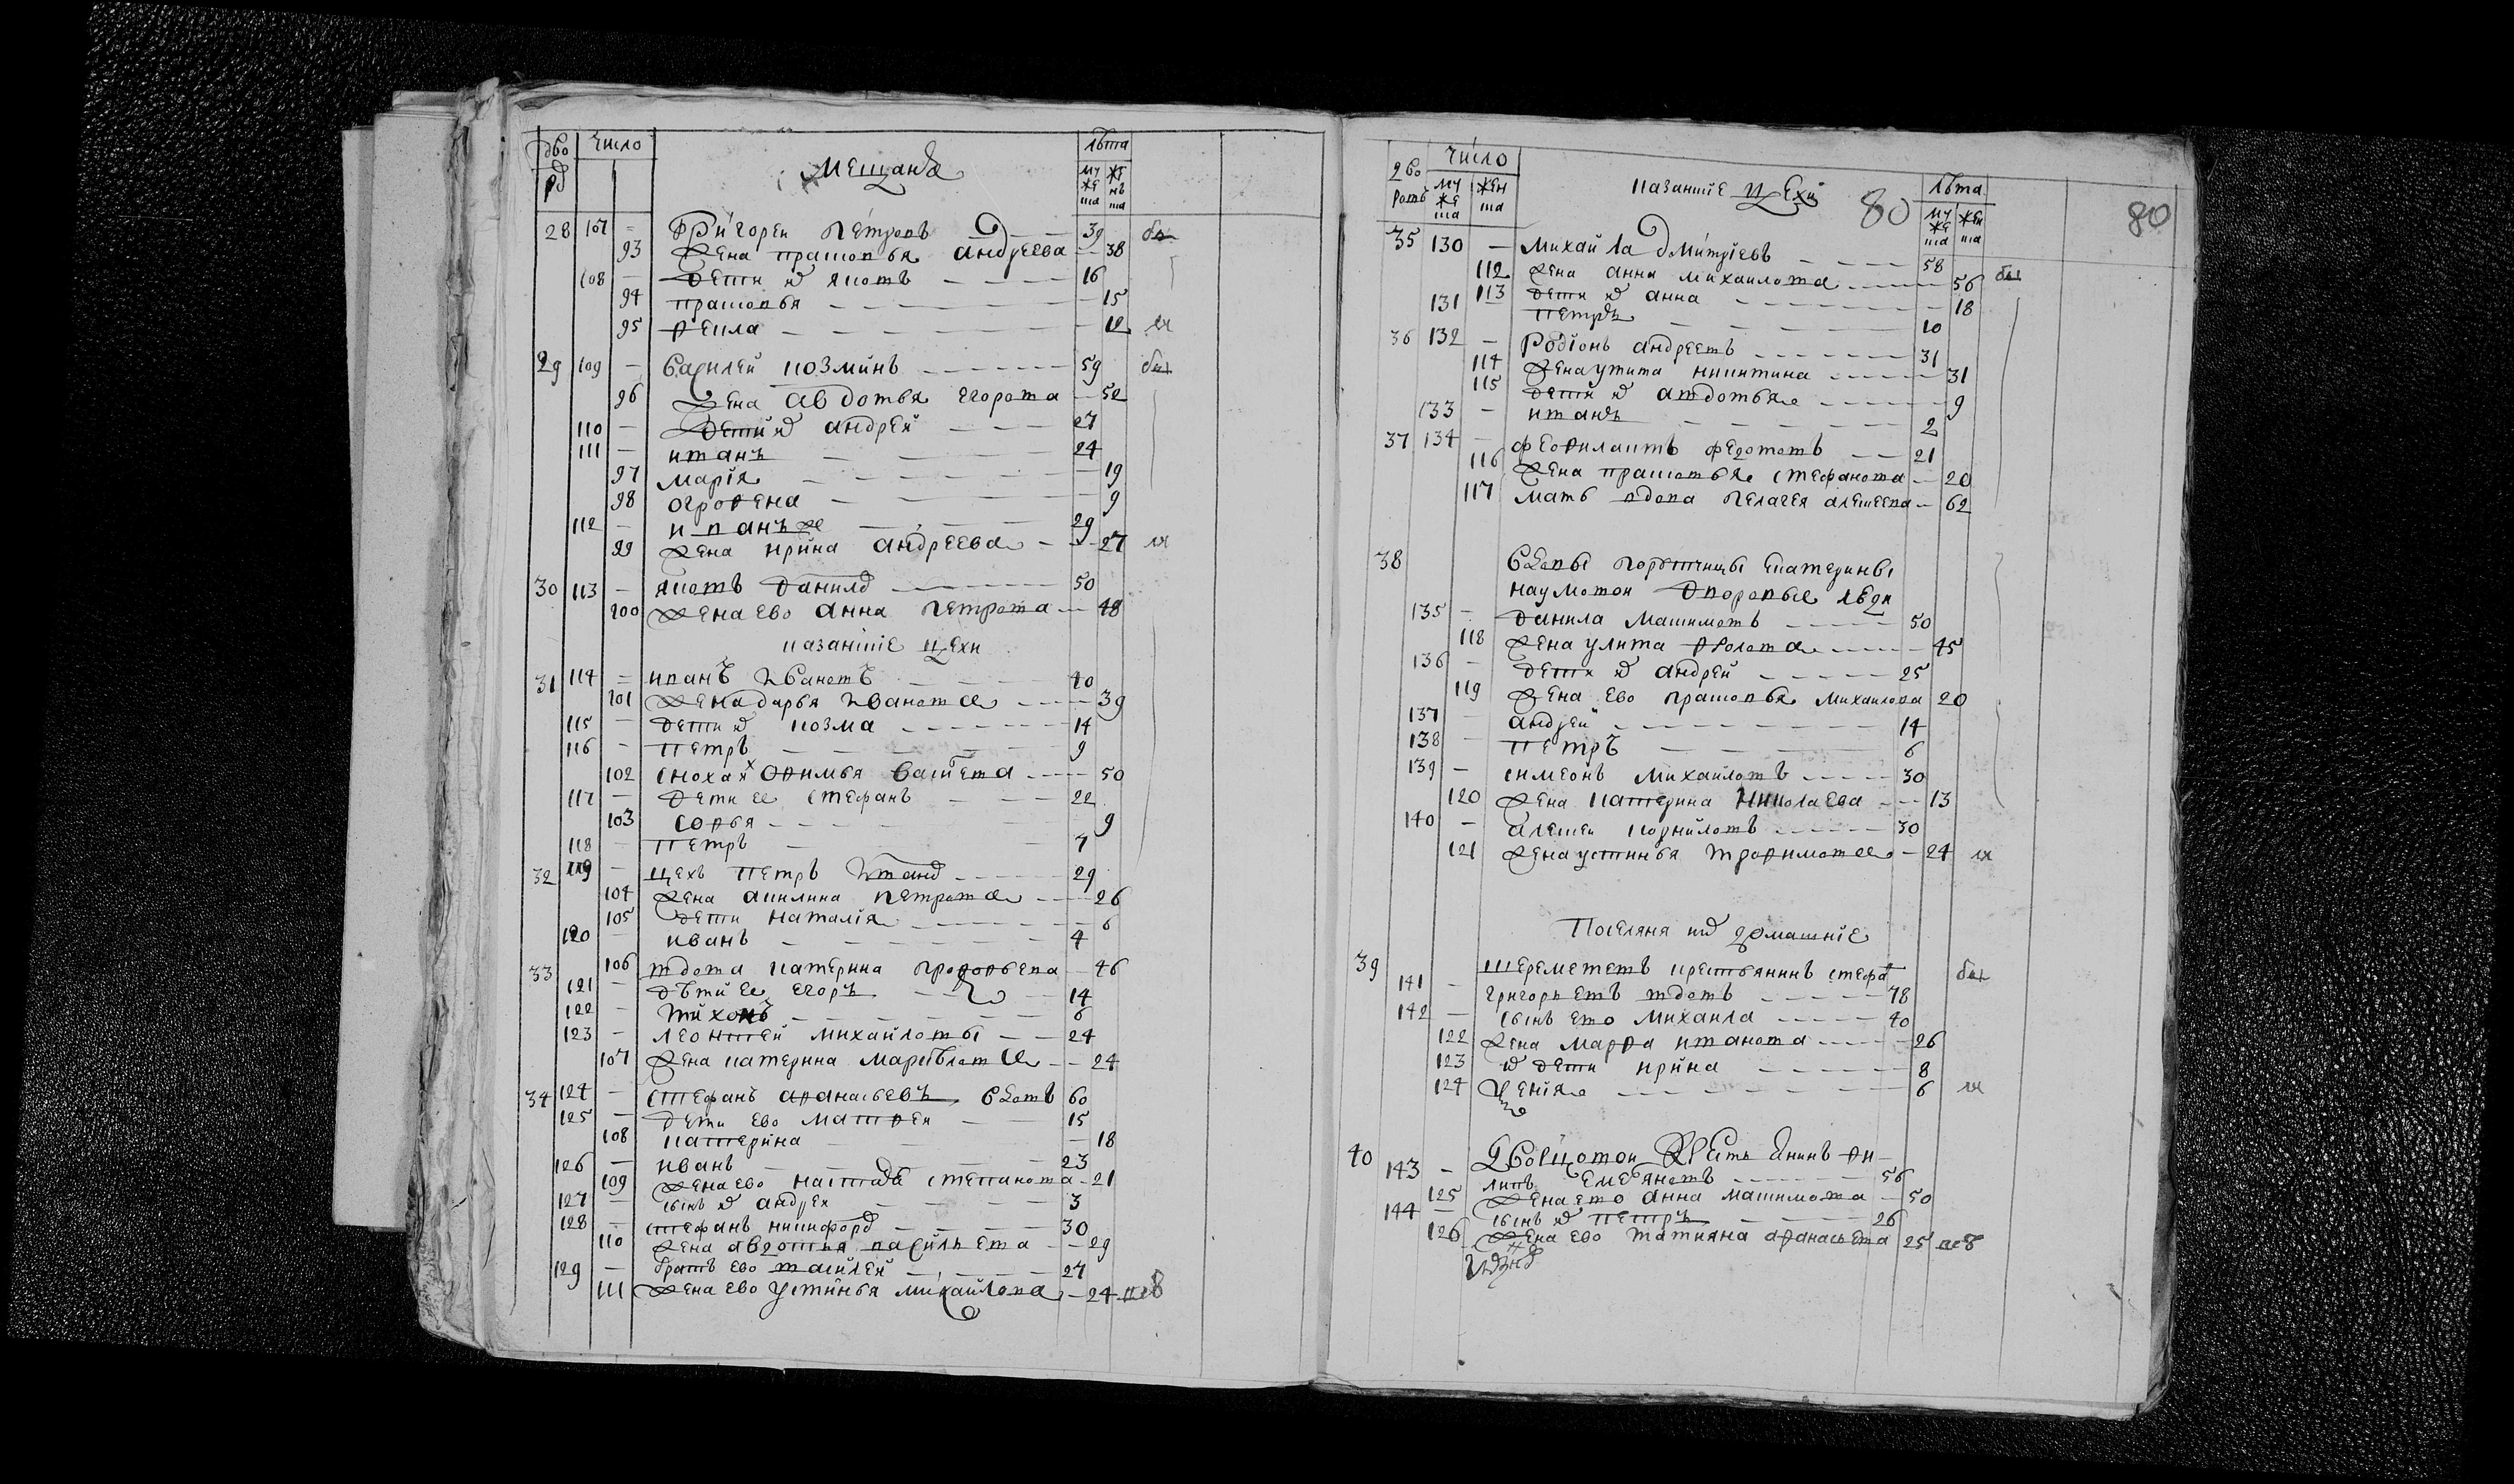 дво рѡ число мещанѣ лѣта
муже ска женъ ска
28 107 — Григореи петровъ — 39 бы
93 Жена прасковья андреева — 38
108 — дети их яковъ — 16
94 прасковья — 15
95 фекла — 12 ли
29 109 — Василей козминъ — 59 был
96 Жена авдотья егорова — 52
110 — дети их андрей — 27
111 — иванъ — 24
97 марія — 19
98 огрофена — 9
112 — иванъ же — 29
99 Жена ирина андреева — 27 ли
30 113 — яковъ данилов — 50
100 Жена ево анна петрова — 48
казанские цехи
31 114 — иванъ ивановъ — 40
101 Жена дарья иванова — 39
115 — дети их козма — 14
116 — петръ — 9
102 сноха их офимья — 50
117 — дети ее стефанъ — 22
103 софья — 9
118 — петръ — 7
32 119 — цехъ петръ иванов — 29
104 Жена акилина петрова — 26
105 дети наталія — 6
120 — иванъ — 4
33 106 вдова катерина прокофьева — 46
121 — дѣти ее егоръ — 14
122 — тихонъ — 6
123 — леонтей михайловъ — 24
107 Жена катерина — 24
34 124 — стефанъ афанасьевъ вдовъ 60
125 — дети ево матфеи — 15
108 катерина — 18
126 — иванъ — 23
109 Жена ево настасья степанова — 21
127 — сынъ их андреи — 3
128 — стефанъ никифоров — 30
110 Жена авдотья васильева — 29
129 — братъ ево василей — 27
111 Жена ево устинья михайлова — 24
дво ровъ число казанские цехи 80 лѣта 80
муже ска жен ска муже ска жен ска
35 130 — михайла дмитріевъ — 58
112 Жена анна михаилова — 56 был
113 дети их анна — 18
131 петръ — 10
36 132 — Родіонъ андреевъ — 31
114 Жена улита никитина — 31
115 дети их авдотья — 9
133 — иванъ — 2
37 134 — феофилактъ федотовъ — 21
116 Жена прасковья стефанова — 20
117 мать вдова пелагея алексеева — 62
38 Вдовы порутчицы екатерины
наумовои дворовые люди
135 — данила максимовъ — 50
118 Жена улита фролова — 45
136 — дети их андрей — 25
119 Жена ево прасковья михаилова 20
137 — андрей — 14
138 — петръ — 6
139 — симеонъ михаиловъ — 30
120 Жена катерина николаева — 13
140 — алексеи корниловъ — 30
121 Жена устинья трофимова — 24 ли
Поселяня их домашніе
39 Шереметевъ крестьянинъ стефа бы
141 — григорьевъ вдовъ — 78
142 — сынъ ево михаила — 40
122 Жена марфа иванова — 26
123 их дети ирина — 8
124 — 6 ли
40 143 — Дворцовои крестьянинъ фи—
липъ емельяновъ — 56
125 Жена ево анна максимова — 50
144 — сынъ их петръ — 26
126 Жена ево татияна афанасьева 25